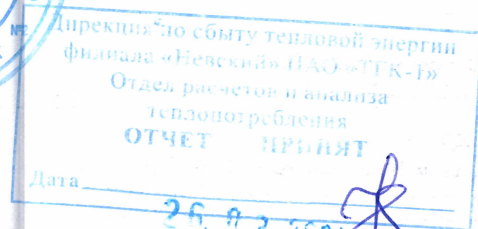 Дирекция по сбыту тепловой энергии
филиала «Невский» ПАО «ТГК-1»
Отдел расчетов и анализа
теплопотребления
ОТЧЕТ ПРИНЯТ
Дата
26.